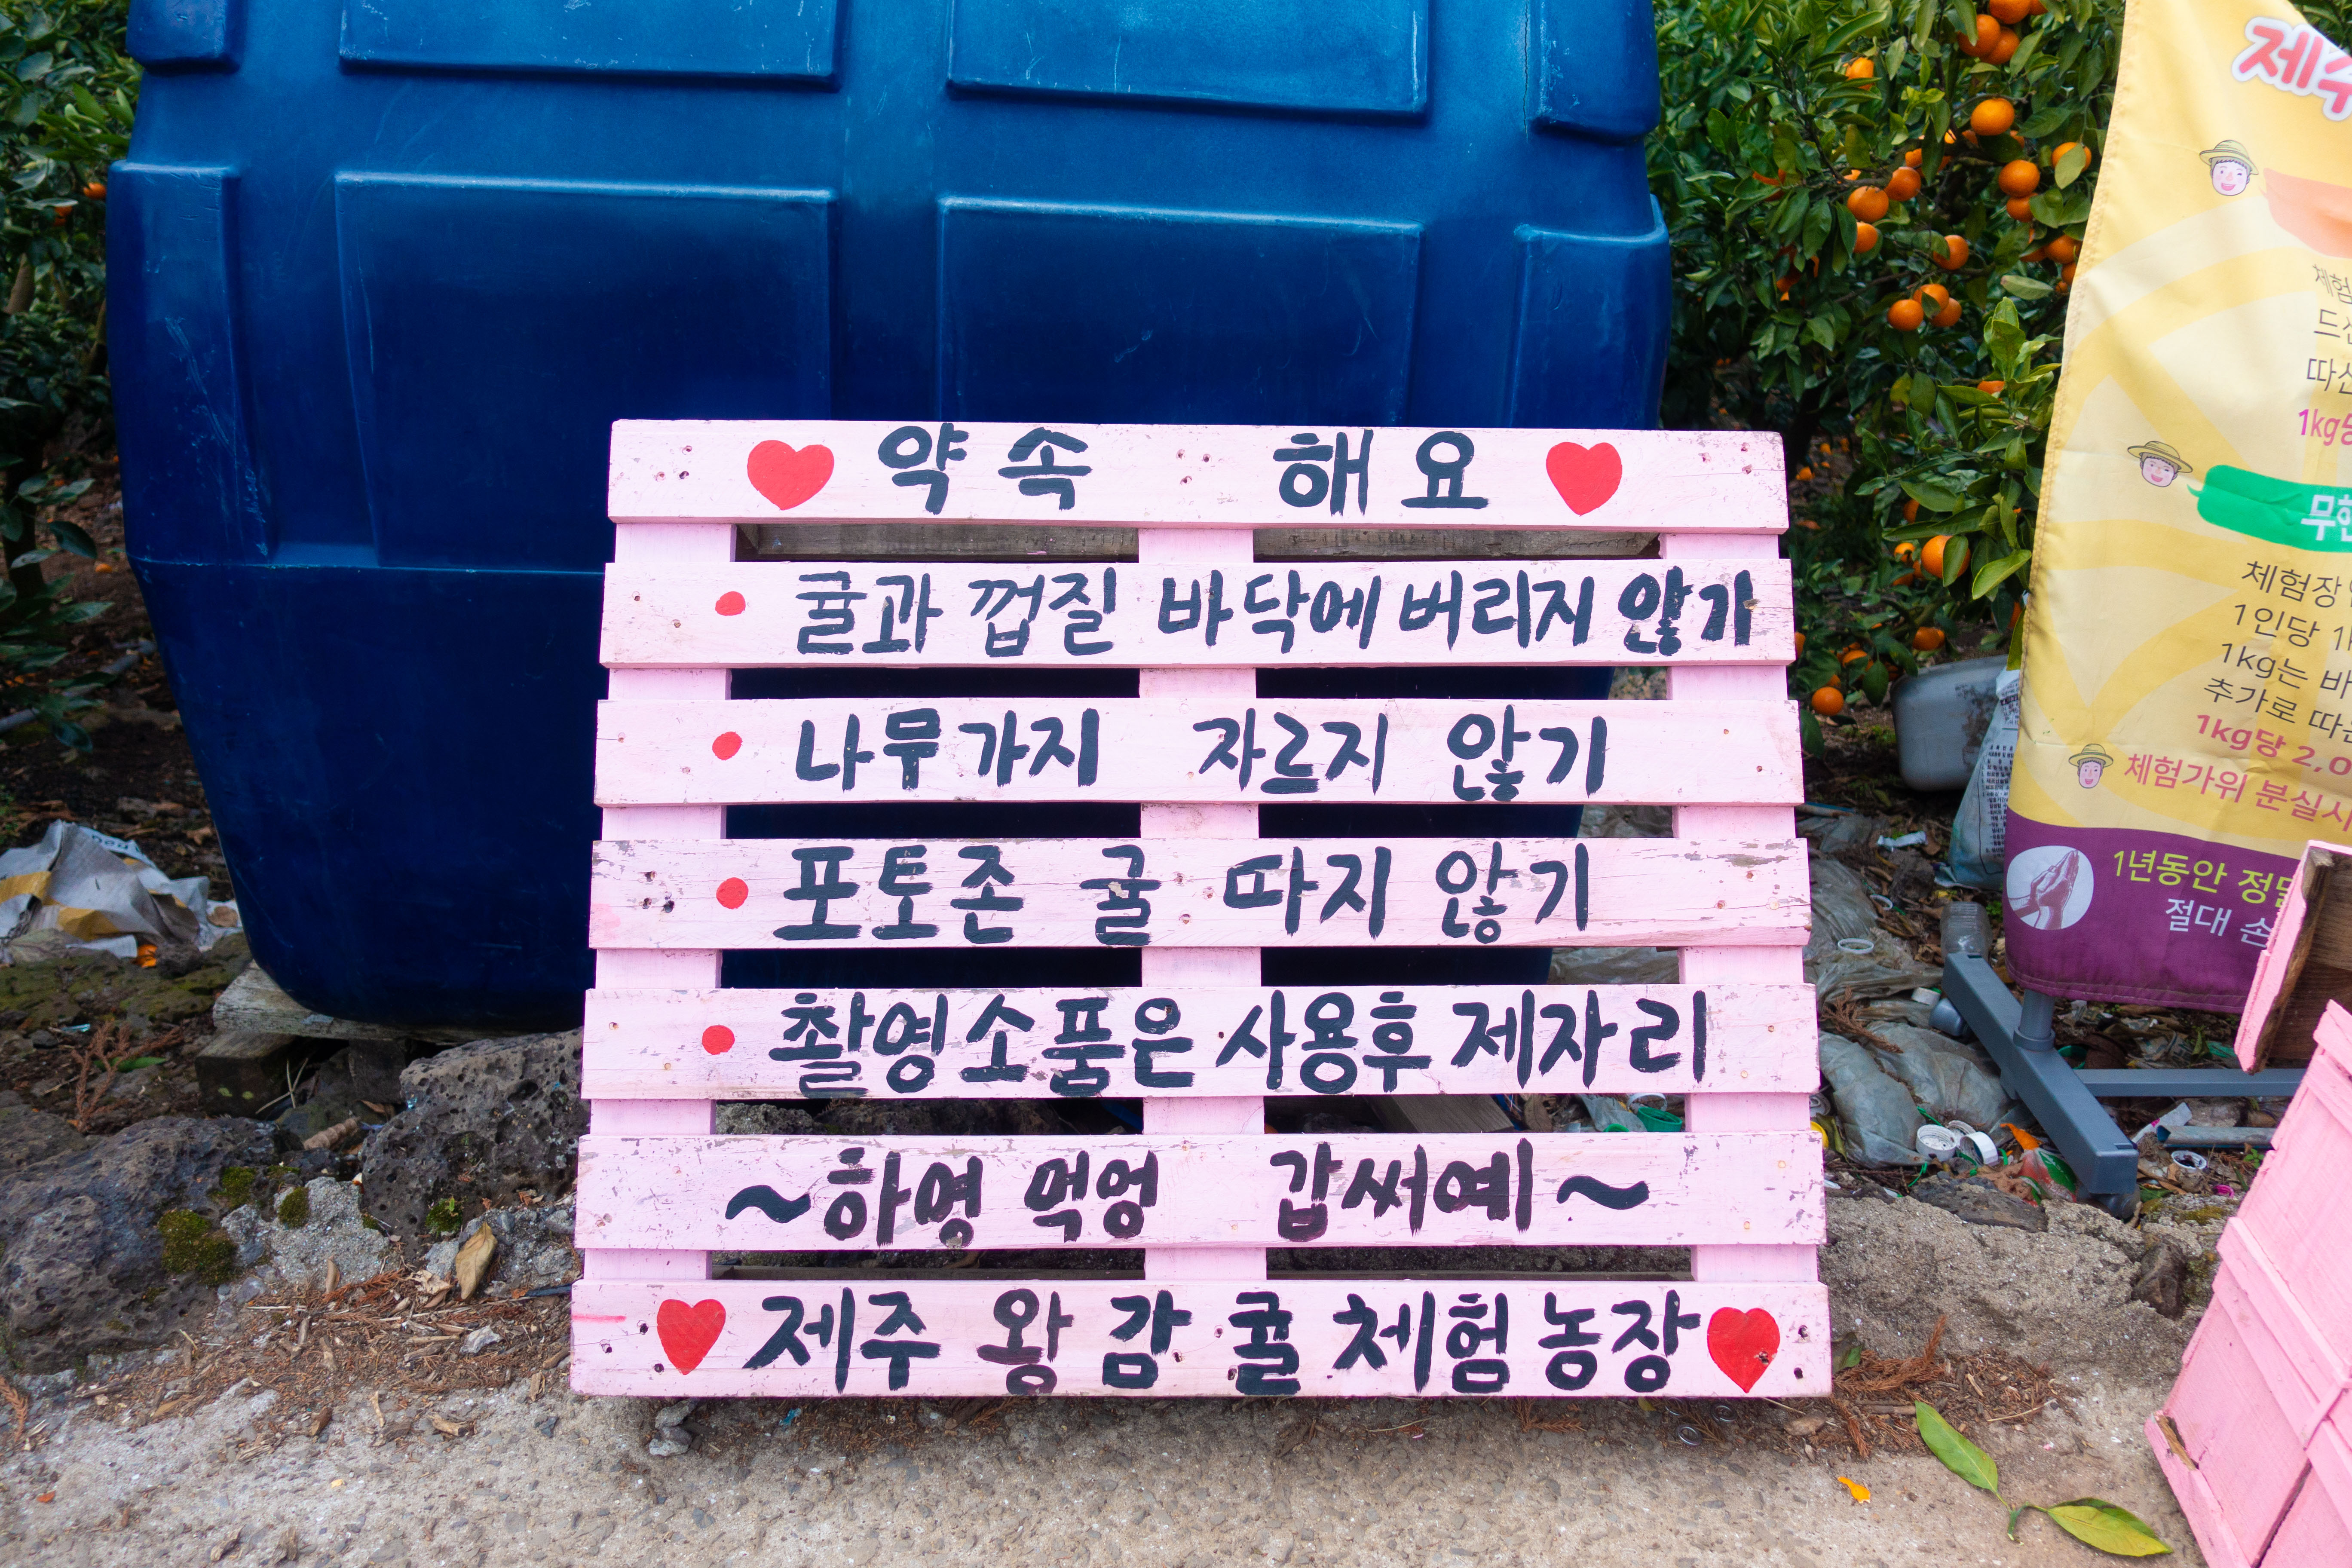 ♥ 약속 해요 ♥
• 귤과 껍질 바닥에 버리지 않기
• 나무가지 자르지 않기
• 포토존 귤 따지 않기
• 촬영소품은 사용후 제자리
~하영 먹엉 갑써예~
♥ 제주 왕 감귤 체험농장 ♥
제주
체험
1kg당
체험장
1인당
1kg는
추가로
1kg당 2,0
체험가위 분실시
1년동안
절대